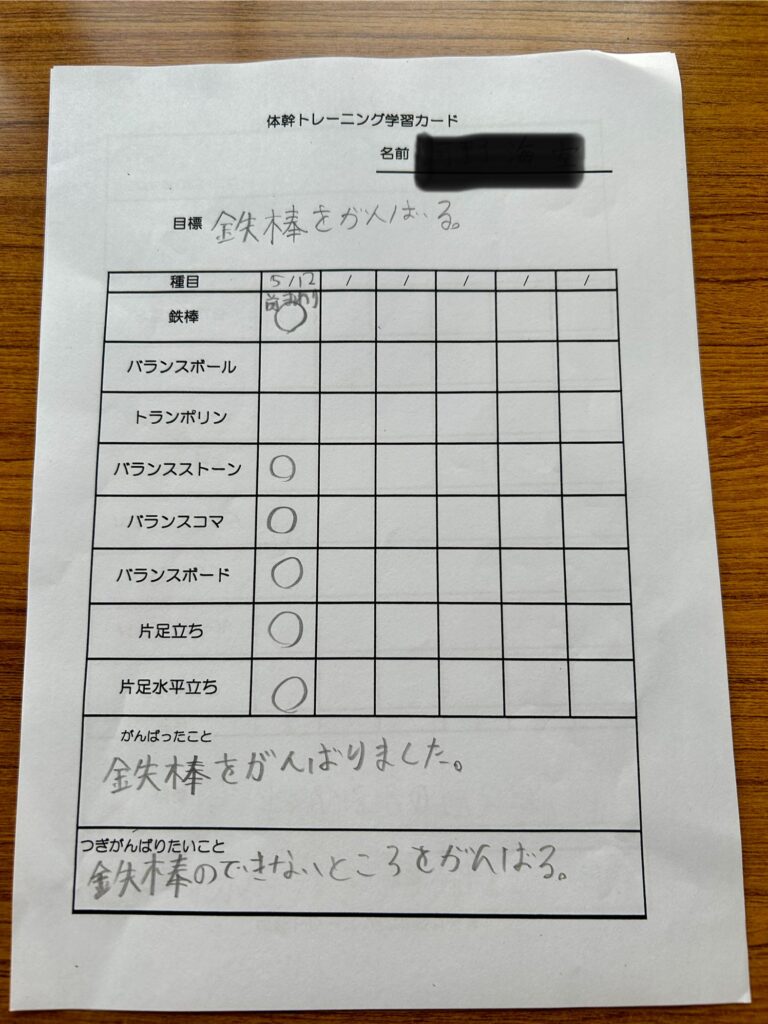 体幹トレーニング学習カード
名前
目標 鉄棒をがんばる。
種目 5/12 / / / / /
前まわり
鉄棒 ○
バランスボール
トランポリン
バランスストーン ○
バランスコマ ○
バランスボード ○
片足立ち ○
片足水平立ち ○
がんばったこと
鉄棒をがんばりました。
つぎがんばりたいこと
鉄棒のできないところをがんばる。